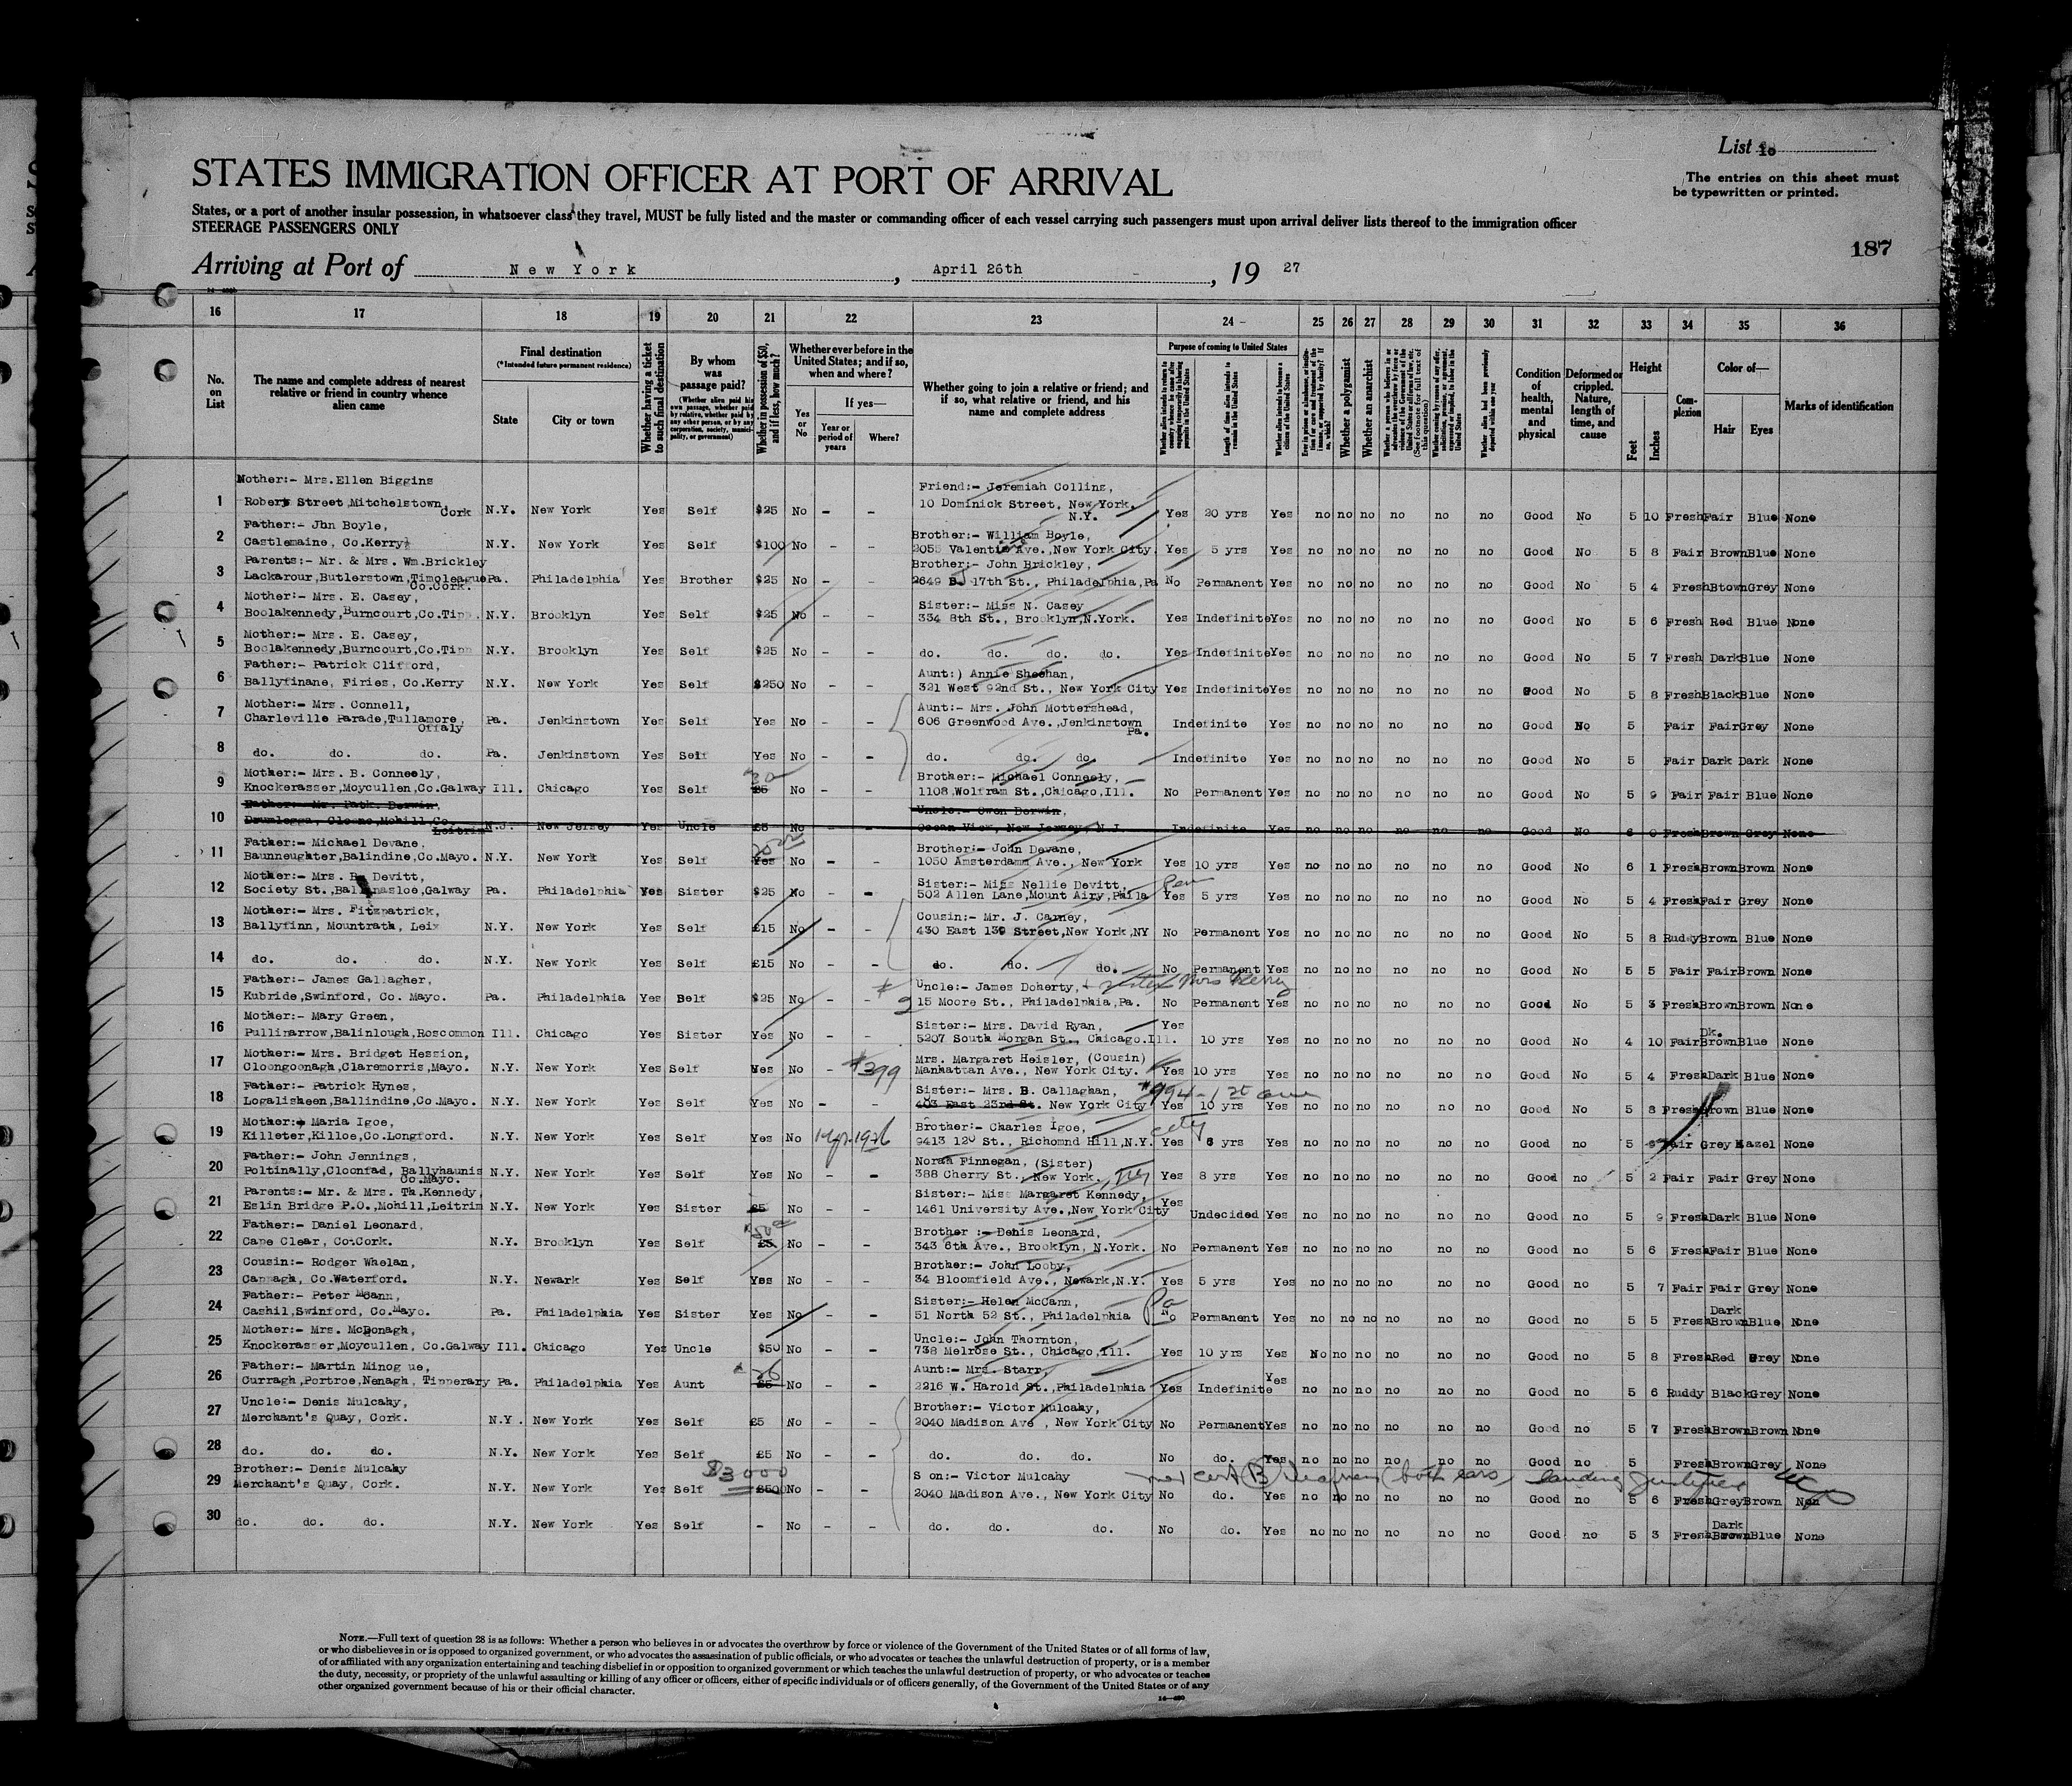 List 10
STATES IMMIGRATION OFFICER AT PORT OF ARRIVAL
The entries on this sheet must
be typewritten or printed.
States, or a port of another insular possession, in whatsoever class they travel, MUST be fully listed and the master or commanding officer of each vessel carrying such passengers must upon arrival deliver lists thereof to the immigration officer
STEERAGE PASSENGERS ONLY
187
Arriving at Port of New York, April 26th, 19 27
16 17 18 19 20 21 22 23 24 25 26 27 28 29 30 31 32 33 34 35 36
No. on List
The name and complete address of nearest relative or friend in country whence alien came
Final destination
(*Intended future permanent residence)
State
City or town
Whether having a ticket to such final destination
By whom was passage paid?
(Whether alien paid his own passage, whether paid by relative, whether paid by any other person, or by any corporation, society, municipality, or government)
Whether in possession of $50, and if less, how much?
Whether ever before in the United States; and if so, when and where?
Yes or No
If yes—
Year or period of years
Where?
Whether going to join a relative or friend; and if so, what relative or friend, and his name and complete address
Purpose of coming to United States
Length of time alien intends to remain in the United States
Whether alien intends to become a citizen of the United States
Whether a polygamist
Whether an anarchist
Condition of health, mental and physical
Deformed or crippled. Nature, length of time, and cause
Height
Feet
Inches
Complexion
Color of—
Hair
Eyes
Marks of identification
Mother:- Mrs.Ellen Biggins Friend:- Jeremiah Collins,
1 Robert Street,Mitchelstown, Cork N.Y. New York Yes Self $25 No - - 10 Dominick Street, New York. N.Y. Yes 20 yrs Yes no no no no no no Good No 5 10 Fresh Fair Blue None
Father:- Jhn Boyle, Brother:- William Boyle,
2 Castlemaine, Co.Kerry N.Y. New York Yes Self $100 No - - 2055 Valentin Ave.,New York City. Yes 5 yrs Yes no no no no no no Good No 5 8 Fair Brown Blue None
Parents:- Mr. & Mrs. Wm.Brickley Brother:- John Brickley,
3 Lackarour,Butlerstown,Timoleague Co.Cork. Pa. Philadelphia Yes Brother $25 No - - 2649 17th St., Philadelphia,Pa No Permanent Yes no no no no no no Good No 5 4 Fresh Btown Grey None
Mother:- Mrs. E. Casey, Sister:- Miss N. Casey
4 Boolakennedy,Burncourt,Co.Tipp. N.Y. Brooklyn Yes Self $25 No - - 334 8th St., Brooklyn,N.York. Yes Indefinite Yes no no no no no no Good No 5 6 Fresh Red Blue None
Mother:- Mrs. E. Casey,
5 Boolakennedy,Burncourt,Co.Tipp N.Y. Brooklyn Yes Self $25 No - - do. do. do. do. Yes Indefinite Yes no no no no no no Good No 5 7 Fresh Dark Blue None
Father:- Patrick Clifford, Aunt:) Annie Sheehan,
6 Ballyfinane, Firies, Co.Kerry N.Y. New York Yes Self $250 No - - 321 West 92nd St., New York City Yes Indefinite Yes no no no no no no Good No 5 8 Fresh Black Blue None
Mother:- Mrs. Connell, Aunt:- Mrs. John Mottershead,
7 Charleville Parade,Tullamore, Offaly Pa. Jenkinstown Yes Self Yes No - - 606 Greenwood Ave.,Jenkinstown Pa. Indefinite Yes no no no no no no Good No 5 Fair Fair Grey None
8 do. do. do. Pa. Jenkinstown Yes Self Yes No - - do. do. do. Indefinite Yes no no no no no no Good No 5 Fair Dark Dark None
Mother:- Mrs. B. Conneely, 30 Brother:- Michael Conneely,
9 Knockerasser,Moycullen,Co.Galway Ill. Chicago Yes Self £5 No - - 1108,Wolfram St.,Chicago,Ill. No Permanent Yes no no no no no no Good No 5 9 Fair Fair Blue None
Father:- Mr. Patk. Derwin, Uncle:- Owen Derwin,
10 Drumlogga, Cloone,Mohill,Co. Leitrim N.J. New Jersey Yes Uncle £5 No Ocean View, New Jersey, N.J. Indefinite Yes no no no no no no Good No 6 0 Fresh Brown Grey None
Father:- Michael Devane, Brother:- John Devane,
11 Baunneughter,Balindine,Co.Mayo. N.Y. New York Yes Self Yes No - - 1050 Amsterdamm Ave., New York Yes 10 yrs Yes no no no no no no Good No 6 1 Fresh Brown Brown None
Mother:- Mrs. B. Devitt, Sister:- Miss Nellie Devitt,
12 Society St.,Ballinasloe,Galway Pa. Philadelphia Yes Sister $25 No - - 502 Allen Lane,Mount Airy,Phila Yes 5 yrs Yes no no no no no no Good No 5 4 Fresh Fair Grey None
Mother:- Mrs. Fitzpatrick, Cousin:- Mr. J. Carney,
13 Ballyfinn, Mountrath, Leix N.Y. New York Yes Self £15 No - - 430 East 139 Street,New York,NY No Permanent Yes no no no no no no Good No 5 8 Ruddy Brown Blue None
14 do. do. do. N.Y. New York Yes Self £15 No - - do. do. do. No Permanent Yes no no no no no no Good No 5 5 Fair Fair Brown None
Father:- James Gallagher, Uncle:- James Doherty, sister Mrs Kerry
15 Kubride,Swinford, Co. Mayo. Pa. Philadelphia Yes Belf $25 No - - 2 15 Moore St., Philadelphia,Pa. No Permanent Yes no no no no no no Good No 5 3 Fresh Brown Brown None
Mother:- Mary Green, Sister:- Mrs. David Ryan, Yes
16 Pullinarrow,Balinlough,Roscommon Ill. Chicago Yes Sister Yes No - - 5207 South Morgan St., Chicago.Ill. 10 yrs Yes no no no no no no Good No 4 10 Fair Dk. Brown Blue None
Mother:- Mrs. Bridget Hession, Mrs. Margaret Heisler, (Cousin)
17 Cloongoonagh,Claremorris,Mayo. N.Y. New York Yes Self Yes No - #399 Manhattan Ave., New York City. Yes 10 yrs Yes no no no no no no Good No 5 4 Fresh Dark Blue None
Father:- Patrick Hynes, Sister:- Mrs. B. Callaghan, #994-1st ave
18 Logalisheen,Ballindine,Co.Mayo. N.Y. New York Yes Self Yes No - - 403 East 23rd St. New York City Yes 10 yrs Yes no no no no no no Good No 5 8 Fresh Brown Blue None
Mother:- Maria Igoe, Brother:- Charles Igoe, city
19 Killeter,Killoe,Co.Longford. N.Y. New York Yes Self Yes No 1926 9413 120 St., Richomnd Hill,N.Y. Yes 6 yrs Yes no no no no no no Good no 5 Fair Grey Hazel None
Father:- John Jennings, Norah Finnegan, (Sister)
20 Poltinally,Cloonfad, Ballyhaunis Co.Mayo. N.Y. New York Yes Self Yes No - 388 Cherry St., New York., NY Yes 8 yrs Yes no no no no no no Good no 5 2 Fair Fair Grey None
Parents:- Mr. & Mrs. Th.Kennedy, Sister:- Miss Margaret Kennedy, Yes
21 Eslin Bridge P.O.,Mohill,Leitrim N.Y. New York Yes Sister £5 No - - 1461 University Ave.,New York City Undecided Yes no no no no no no Good no 5 9 Fresh Dark Blue None
Father:- Daniel Leonard, Brother :- Denis Leonard,
22 Cape Clear, Co.Cork. N.Y. Brooklyn Yes Self £5 No - - 343 6th Ave., Brooklyn, N.York. No Permanent Yes no no no no no no Good no 5 6 Fresh Fair Blue None
Cousin:- Rodger Whelan, Brother:- John Looby,
23 Cappagh, Co.Waterford. N.Y. Newark Yes Self Yes No - - 34 Bloomfield Ave., Newark,N.Y. Yes 5 yrs Yes no no no no no no Good no 5 7 Fair Fair Grey None
Father:- Peter McCann, Sister:- Helen McCann, Pa
24 Cashil,Swinford, Co.Mayo. Pa. Philadelphia Yes Sister Yes No - 51 North 52 St., Philadelphia No Permanent Yes no no no no no no Good no 5 5 Fresh Dark Brown Blue None
Mother:- Mrs. McDonagh, Uncle:- John Thornton,
25 Knockerasser,Moycullen, Co.Galway Ill. Chicago Yes Uncle $50 No - - 738 Melrose St., Chicago,Ill. Yes 10 yrs Yes No no no no no no Good no 5 8 Fresh Red Grey None
Father:- Martin Minog ue, 26 Aunt:- Mrs. Starr,
26 Curragh,Portroe,Nenagh, Tipperary Pa. Philadelphia Yes Aunt £5 No - - 2216 W. Harold St.,Philadelphia Yes Indefinite Yes no no no no no no Good no 5 6 Ruddy Black Grey None
Uncle:- Denis Mulcahy, Brother:- Victor Mulcahy,
27 Merchant's Quay, Cork. N.Y. New York Yes Self £5 No - - 2040 Madison Ave , New York City No Permanent Yes no no no no no no Good no 5 7 Fresh Brown Brown None
28 do. do. do. N.Y. New York Yes Self £5 No - - do. do. do. No do. Yes no no no no no no Good no 5 Fresh Brown Grey None
Brother:- Denis Mulcahy $3000 S on:- Victor Mulcahy med cert (B) Deafness (both ears)
29 Merchant's Quay, Cork. N.Y. New York Yes Self £500 No - - 2040 Madison Ave., New York City No do. Yes no no no no no no Good no 5 6 Fresh Grey Brown Non
30 do. do. do. N.Y. New York Yes Self - No - - do. do. do. No do. Yes no no no no no no Good no 5 3 Fresh Dark Brown Blue None
NOTE.—Full text of question 28 is as follows: Whether a person who believes in or advocates the overthrow by force or violence of the Government of the United States or of all forms of law,
or who disbelieves in or is opposed to organized government, or who advocates the assassination of public officials, or who advocates or teaches the unlawful destruction of property, or is a member
of or affiliated with any organization entertaining and teaching disbelief in or opposition to organized government or which teaches the unlawful destruction of property, or who advocates or teaches
the duty, necessity, or propriety of the unlawful assaulting or killing of any officer or officers, either of specific individuals or of officers generally, of the Government of the United States or of any
other organized government because of his or their official character.